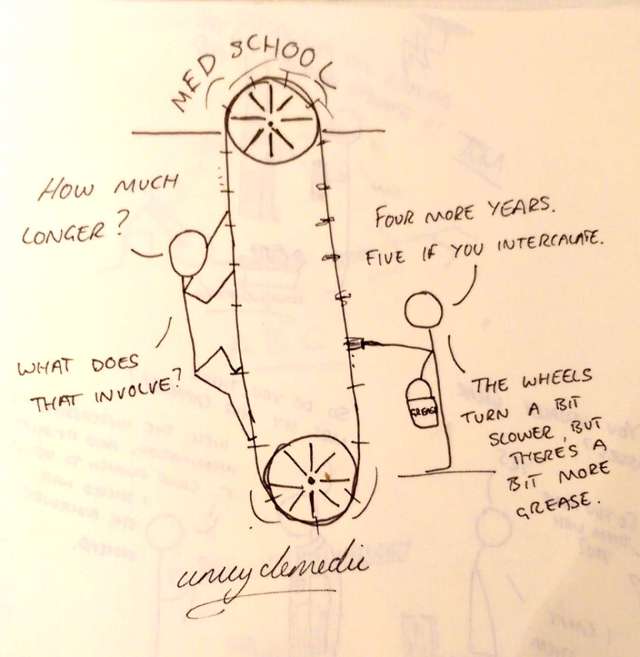 MED SCHOOL
HOW MUCH
LONGER?
FOUR MORE YEARS.
FIVE IF YOU INTERCALATE.
WHAT DOES
THAT INVOLVE?
THE WHEELS
TURN A BIT
SLOWER, BUT
THERE'S A
BIT MORE
GREASE.
GREASE
unicyclemedic